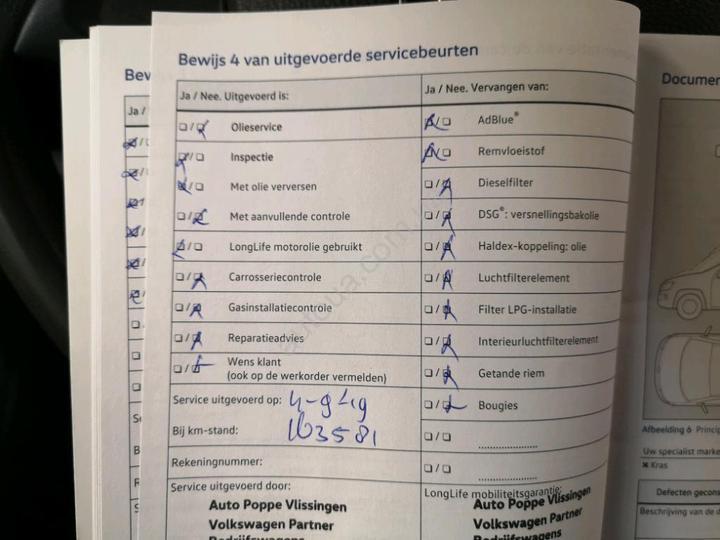 Bewijs 4 van uitgevoerde servicebeurten
Ja / Nee. Uitgevoerd is:
Olieservice
Inspectie
Met olie verversen
Met aanvullende controle
LongLife motorolie gebruikt
Carrosseriecontrole
Gasinstallatiecontrole
Reparatieadvies
Wens klant
(ook op de werkorder vermelden)
Service uitgevoerd op:
Bij km-stand: 163581
Rekeningnummer:
Service uitgevoerd door:
Auto Poppe Vlissingen
Volkswagen Partner
Bedrijfswagens
Ja / Nee. Vervangen van:
AdBlue®
Remvloeistof
Dieselfilter
DSG®: versnellingsbakolie
Haldex-koppeling: olie
Luchtfilterelement
Filter LPG-installatie
Interieurluchtfilterelement
Getande riem
Bougies
LongLife mobiliteitsgarantie:
Auto Poppe Vlissingen
Volkswagen Partner
Bedrijfswagens
Bew
Ja /
Documen
Afbeelding 6 Princip
Uw specialist marke
Kras
Defecten gecons
Beschrijving van de d